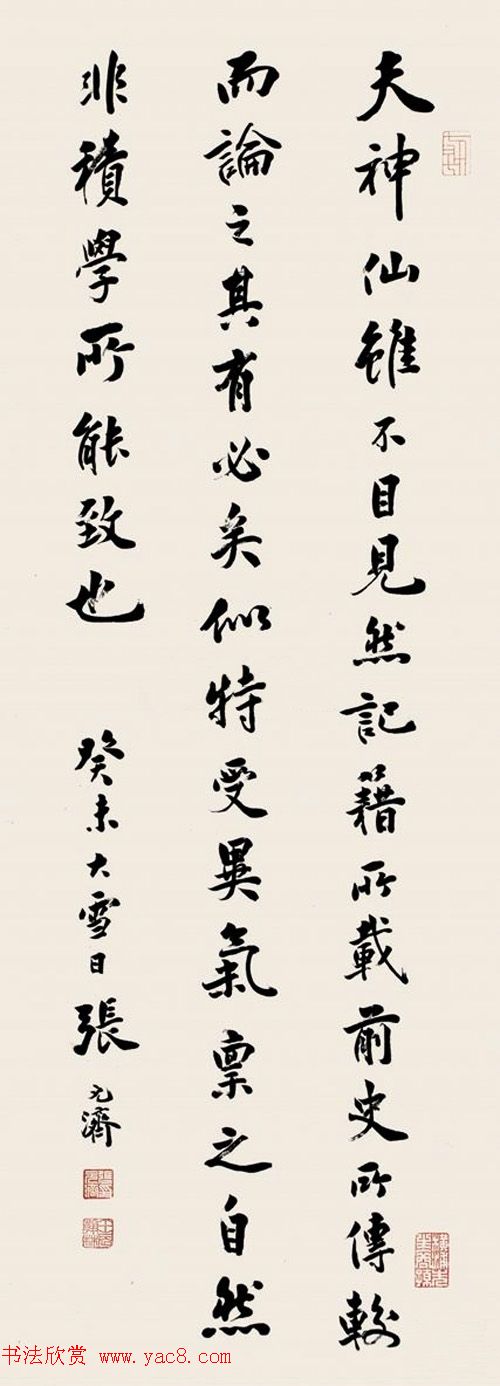 夫神仙雖不目見然記籍所載前史所傳較
而論之其有必矣似特受異氣禀之自然
非積學所能致也
癸未大雪日張元濟
书法欣赏 www.yac8.com